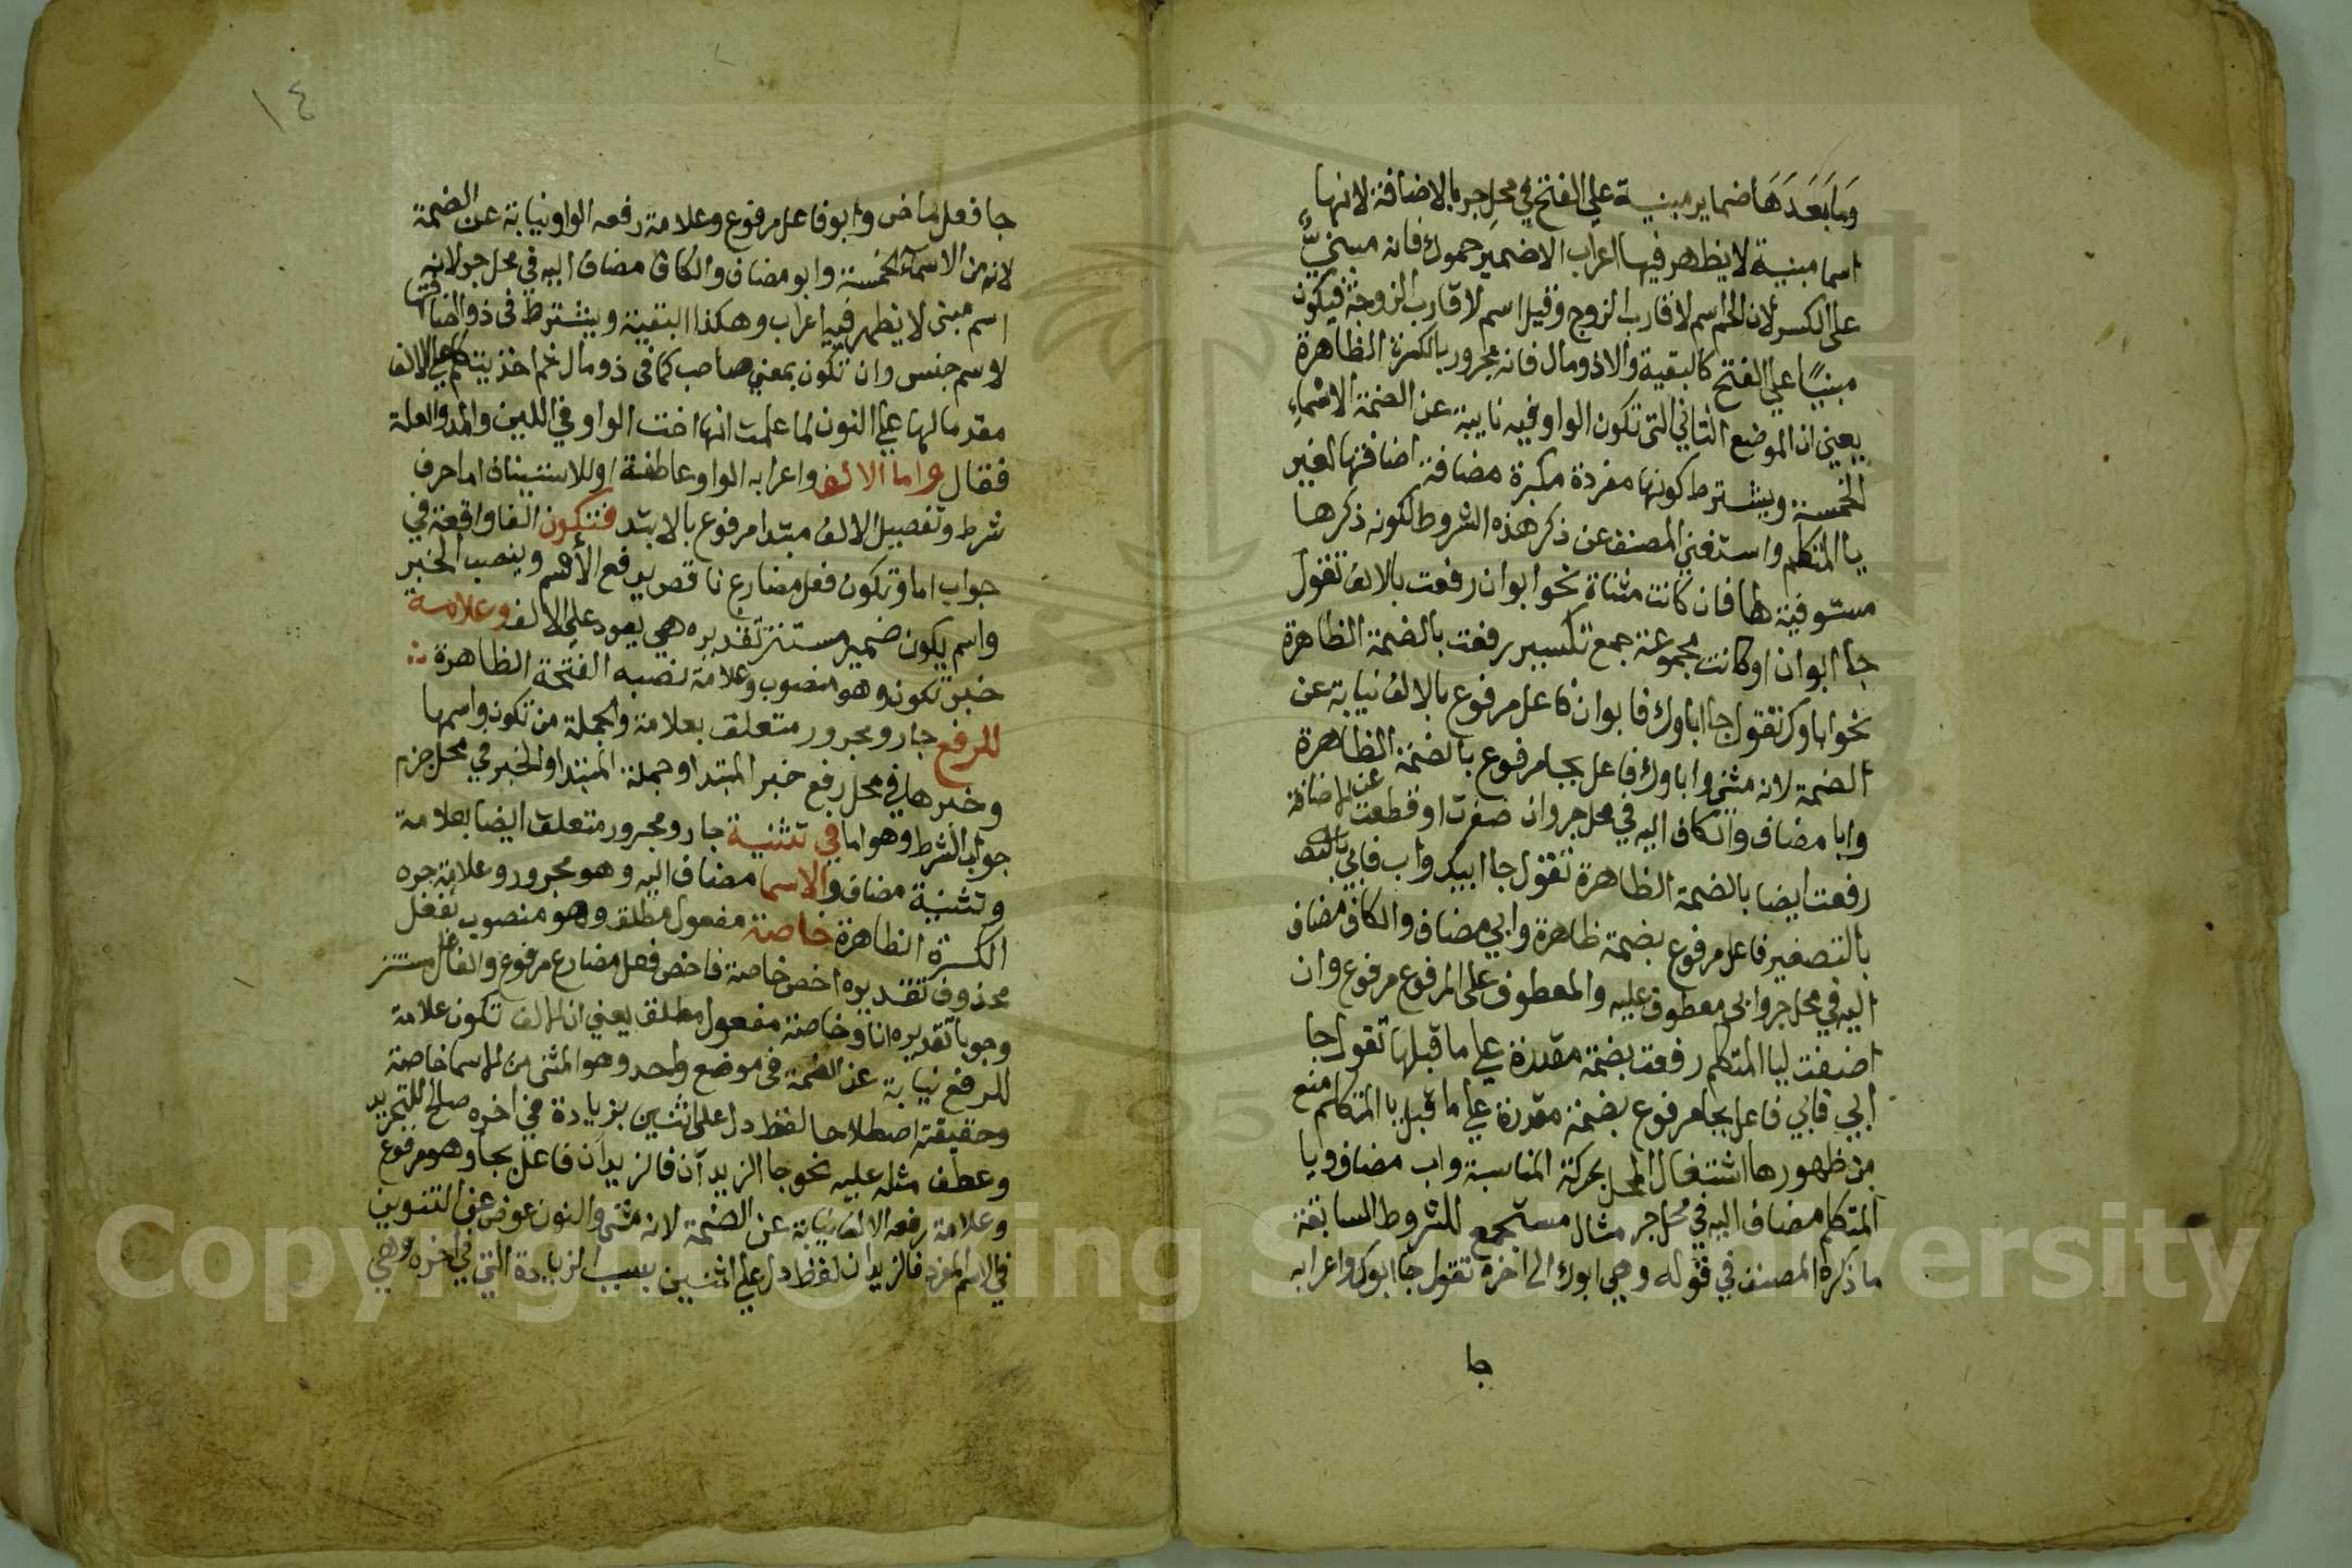 وَمَا بَعَدَهَا ضماير مبنية علي الفتح في محل جر بالاضافة لانها
اسما مبنية لا يظهر فيها اعراب الا ضمير حموك فانه مبنيٌّ
على الكسر لان الحم اسم لاقارب الزوج وقيل اسم لاقارب الزوجة فيكون
مبنيًا علي الفتح كالبقية والا ذو مال فانه مجرور بالكسرة الظاهرة
يعني ان الموضع الثاني التي تكون الواو فيه نايبة عن الضمة الاسماء
الخمسة ويشترط كونها مفردة مكبرة مضافة اضافتها لغير
يا المتكلم واستغني المصنف عن ذكر هذه الشروط لكونه ذكرها
مستوفية لها فان كانت مثناة نحو ابوان رفعت بالالف تقول
جا ابوان او كانت مجموعة جمع تكسير رفعت بالضمة الظاهرة
نحو اباوك تقول جا اباوك فابوان فاعل مرفوع بالالف نيابة عن
الضمة لانه مثني واباوك فاعل بجا مرفوع بالضمة الظاهرة
وابا مضاف والكاف اليه في محل جر وان صغرت او قطعت عن الاضافة
رفعت ايضا بالضمة الظاهرة تقول جا ابيك واب فابي
بالتصغير فاعل مرفوع بضمة ظاهرة وابي مضاف والكاف مضاف
اليه في محل جر وابي معطوف عليه والمعطوف على المرفوع مرفوع وان
اضفت ليا المتكلم رفعت بضمة مقدرة علي ما قبلها تقول جا
ابي فابي فاعل بجا مرفوع بضمة مقدرة علي ما قبل يا المتكلم منع
من ظهورها اشتغال المحل بحركة المناسبة واب مضاف ويا
المتكلم مضاف اليه في محل جر مثال مستجمع للشروط السابقة
ما ذكره المصنف في قوله وهي ابوك الي اخره تقول جا ابوك واعرابه
جا
١٤
جا فعل ماض وابو فاعل مرفوع وعلامة رفعه الواو نيابة عن الضمة
لانه من الاسماء الخمسة وابو مضاف والكاف مضاف اليه في محل جر لانه
اسم مبني لا يظهر فيه اعراب وهكذا البقية ويشترط في ذو اضافتها
لاسم جنس وان تكون بمعني صاحب كما في ذو مال ثم اخذ يتكلم علي الالف
مقدما لها علي النون لما علمت انها اخت الواو في اللين والمد والعلة
فقال واما الالف واعرابه الواو عاطفة او للاستيناف اما حرف
شرط وتفصيل الالف مبتدا مرفوع بالابتد فتكون الفا واقعة في
جواب اما وتكون فعل مضارع ناقص يرفع الاسم وينصب الخبر
واسم يكون ضمير مستتر تقديره هي يعود علي الالف وعلامة
خبر تكون وهو منصوب وعلامة نصبه الفتحة الظاهرة
للرفع جار ومجرور متعلق بعلامة والجملة من تكون واسمها
وخبرها في محل رفع خبر المبتدا وجملة المبتدا والخبر في محل جزم
جواب الشرط وهو اما في تثنية جار ومجرور متعلق ايضا بعلامة
وتثنية مضاف والاسما مضاف اليه وهو مجرور وعلامة جره
الكسرة الظاهرة خاصة مفعول مطلق وهو منصوب بفعل
محذوف تقديره اخص خاصة فاخص فعل مضارع مرفوع والفاعل مستتر
وجوبا تقديره انا وخاصة مفعول مطلق يعني ان الالف تكون علامة
للرفع نيابة عن الضمة في موضع واحد وهو المثني من الاسما خاصة
وحقيقته اصطلاحا لفظ دل على اثنين بزيادة في اخره صالح للتجريد
وعطف مثله عليه نحو جا الزيدان فالزيدان فاعل بجا وهو مرفوع
وعلامة رفعه الالف نيابة عن الضمة لانه مثني والنون عوض عن التنوين
في الاسم المفرد فالزيدان لفظ دل علي اثنين بسبب الزيادة التي في اخره وهي
Copyright © King Saud University